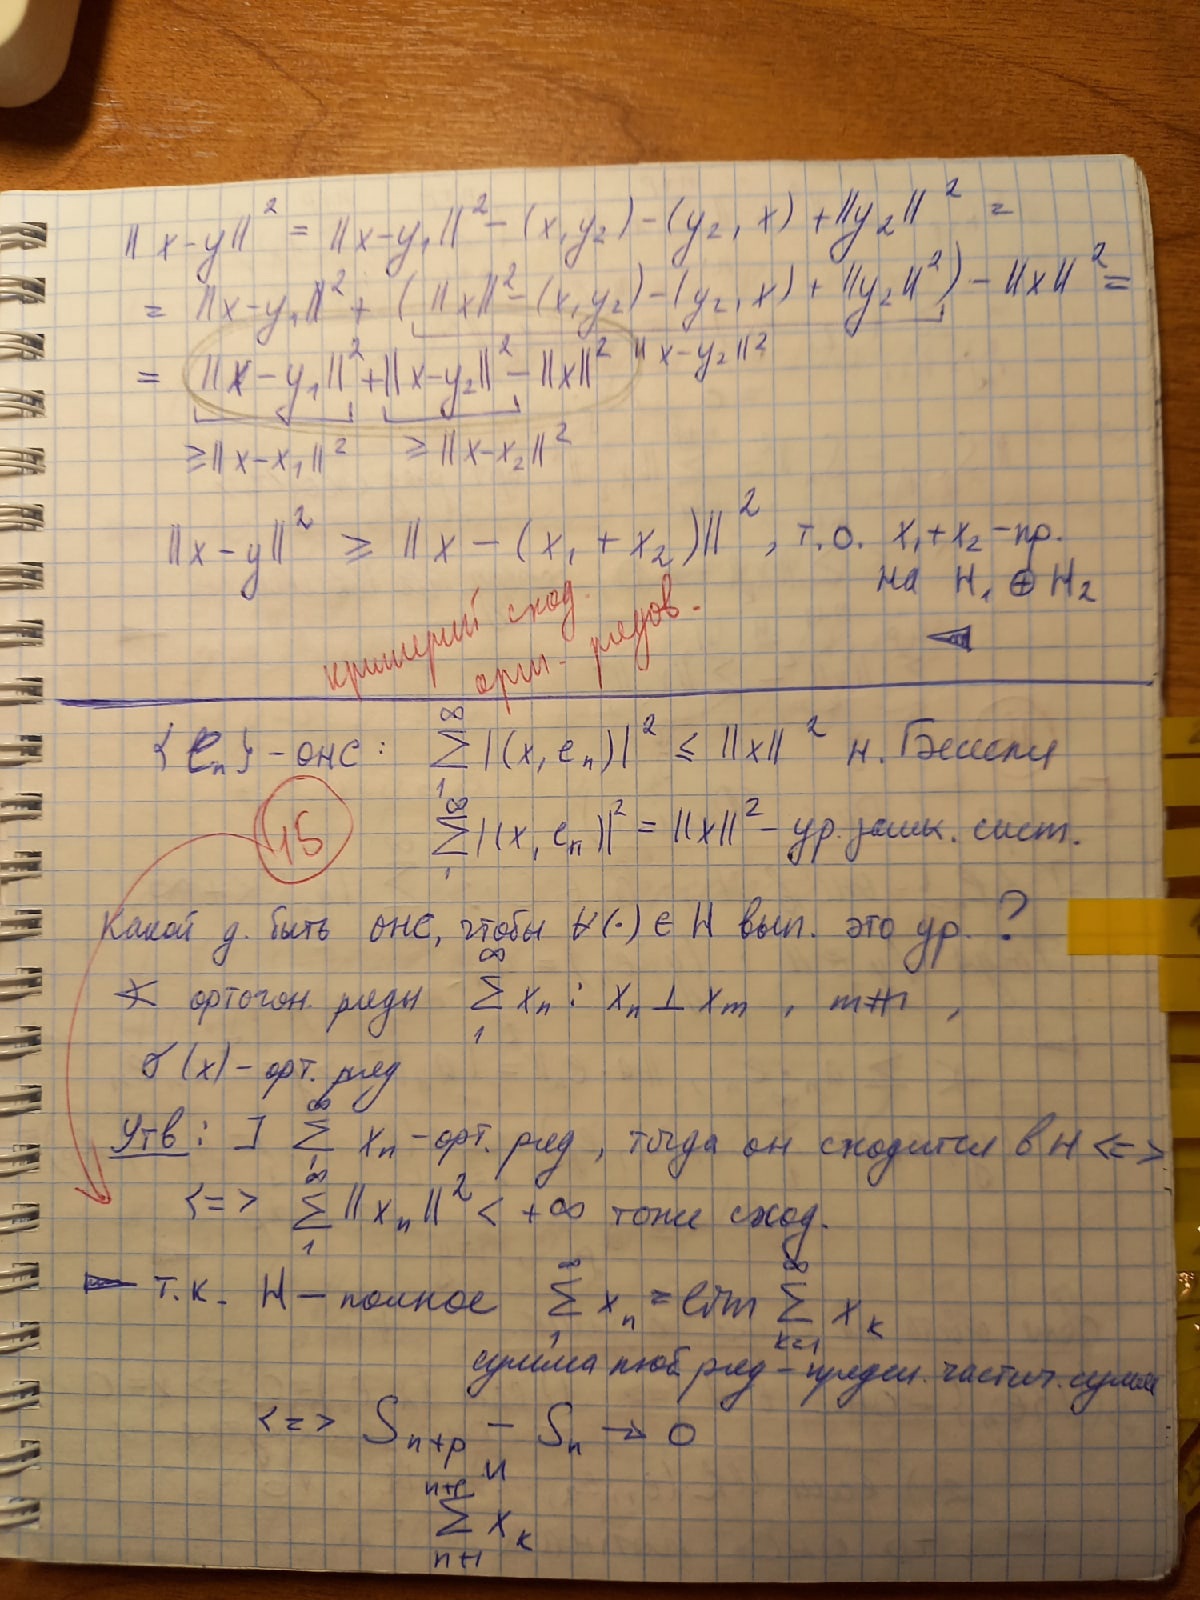 ||x-y||² = ||x-y₁||² - (x,y₂) - (y₂,x) + ||y₂||² =
= ||x-y₁||² + (||x||² - (x,y₂) - (y₂,x) + ||y₂||²) - ||x||² =
= ||x-y₁||² + ||x-y₂||² - ||x||² ||x-y₂||²
≥||x-x₁||² ≥||x-x₂||²
||x-y||² ≥ ||x-(x₁+x₂)||², т.о. x₁+x₂ - пр.
на H₁ ⊕ H₂
◁
критерий сход.
орт. рядов.
{eₙ} - онс: ∑₁^∞ |(x,eₙ)|² ≤ ||x||² н. Бесселя
15
∑₁^∞ |(x,eₙ)|² = ||x||² - ур. замк. сист.
Какой д. быть онс, чтобы ∀(·) ∈ H вып. это ур.?
ортогон. ряды ∑₁^∞ xₙ : xₙ ⊥ xₘ, m≠n,
σ(x) - орт. ряд
Утв: ] ∑₁^∞ xₙ - орт. ряд, тогда он сходится в H <=>
<=> ∑₁^∞ ||xₙ||² < +∞ тоже сход.
▷ т.к. H - полное ∑₁^∞ xₙ = lim ∑ₖ₌₁^∞ xₖ
сумма люб ряд - предел. частич. сумм
<=> Sₙ₊ₚ - Sₙ → 0
||
∑ₙ₊₁ⁿ⁺ᵖ xₖ